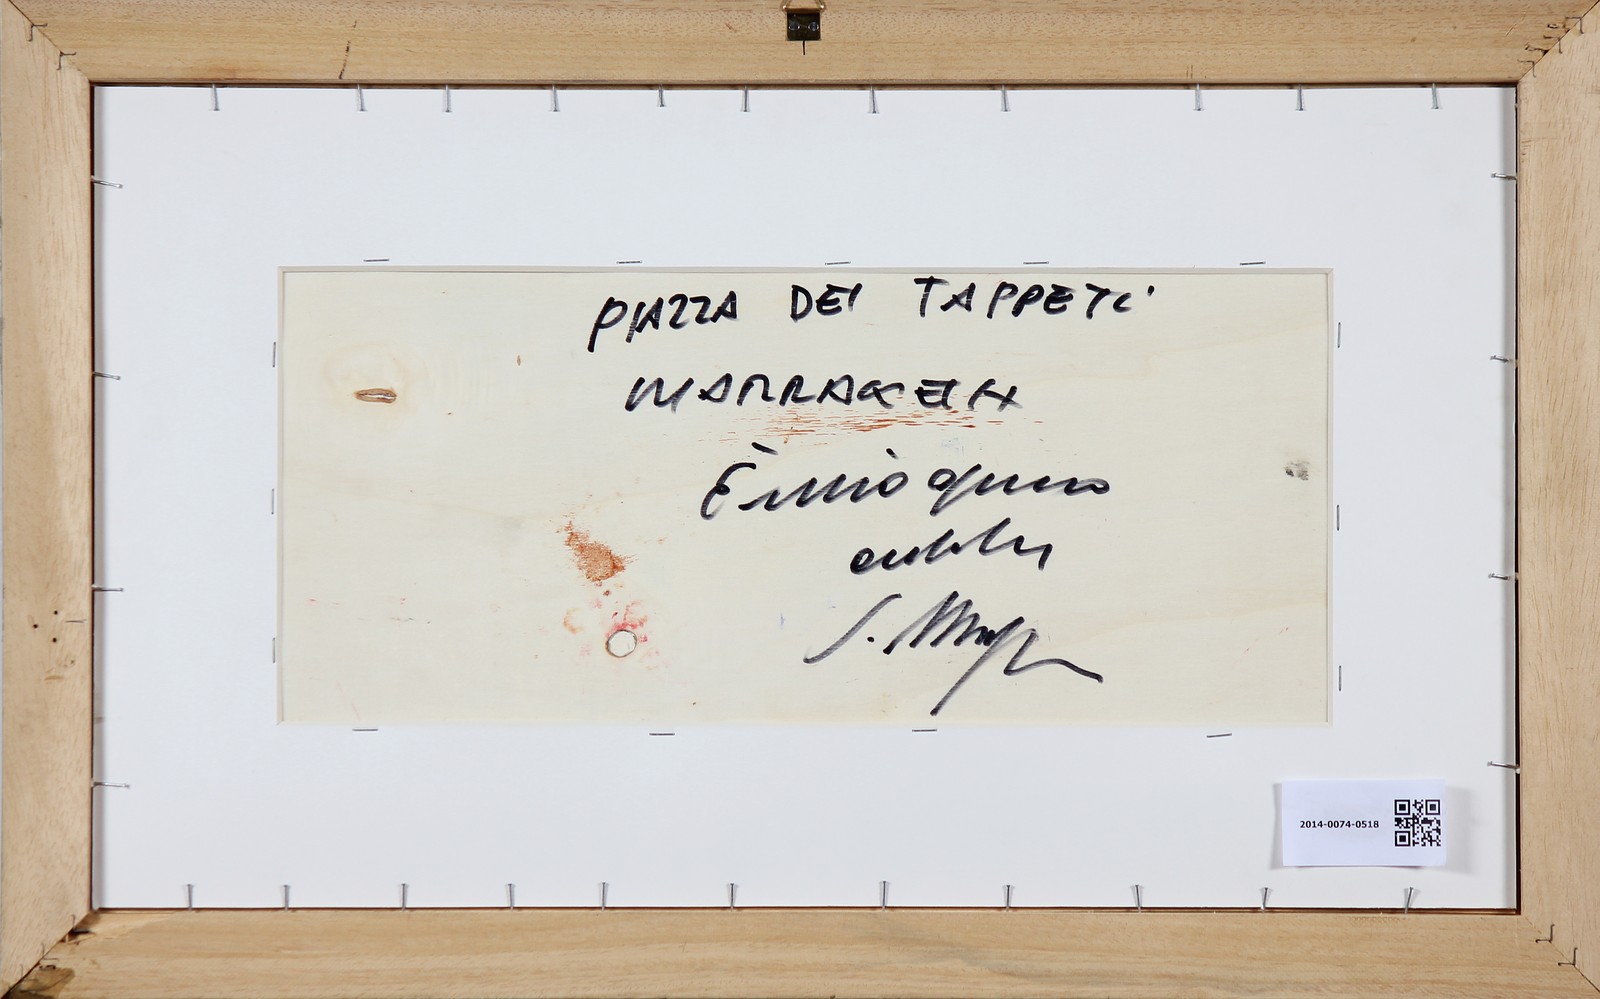 PIAZZA DEI TAPPETI
MARRAKECH
È mio questo
S.
2014-0074-0518